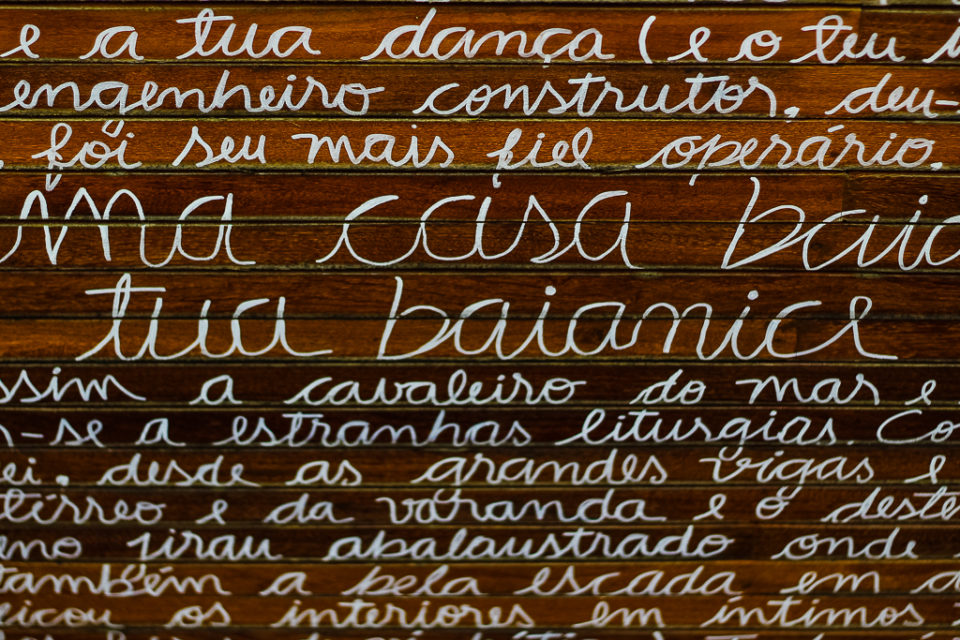 e a tua dança (e o teu
engenheiro construtor, deu-
foi seu mais fiel operário.
uma casa baia
tua baianice
ssim a cavaleiro do mar e
-se a estranhas liturgias. Co
ei, desde as grandes vigas e
térreo e da varanda e o deste
eno jirau abalaustrado onde
também a bela escada em a
eicou os interiores em íntimos